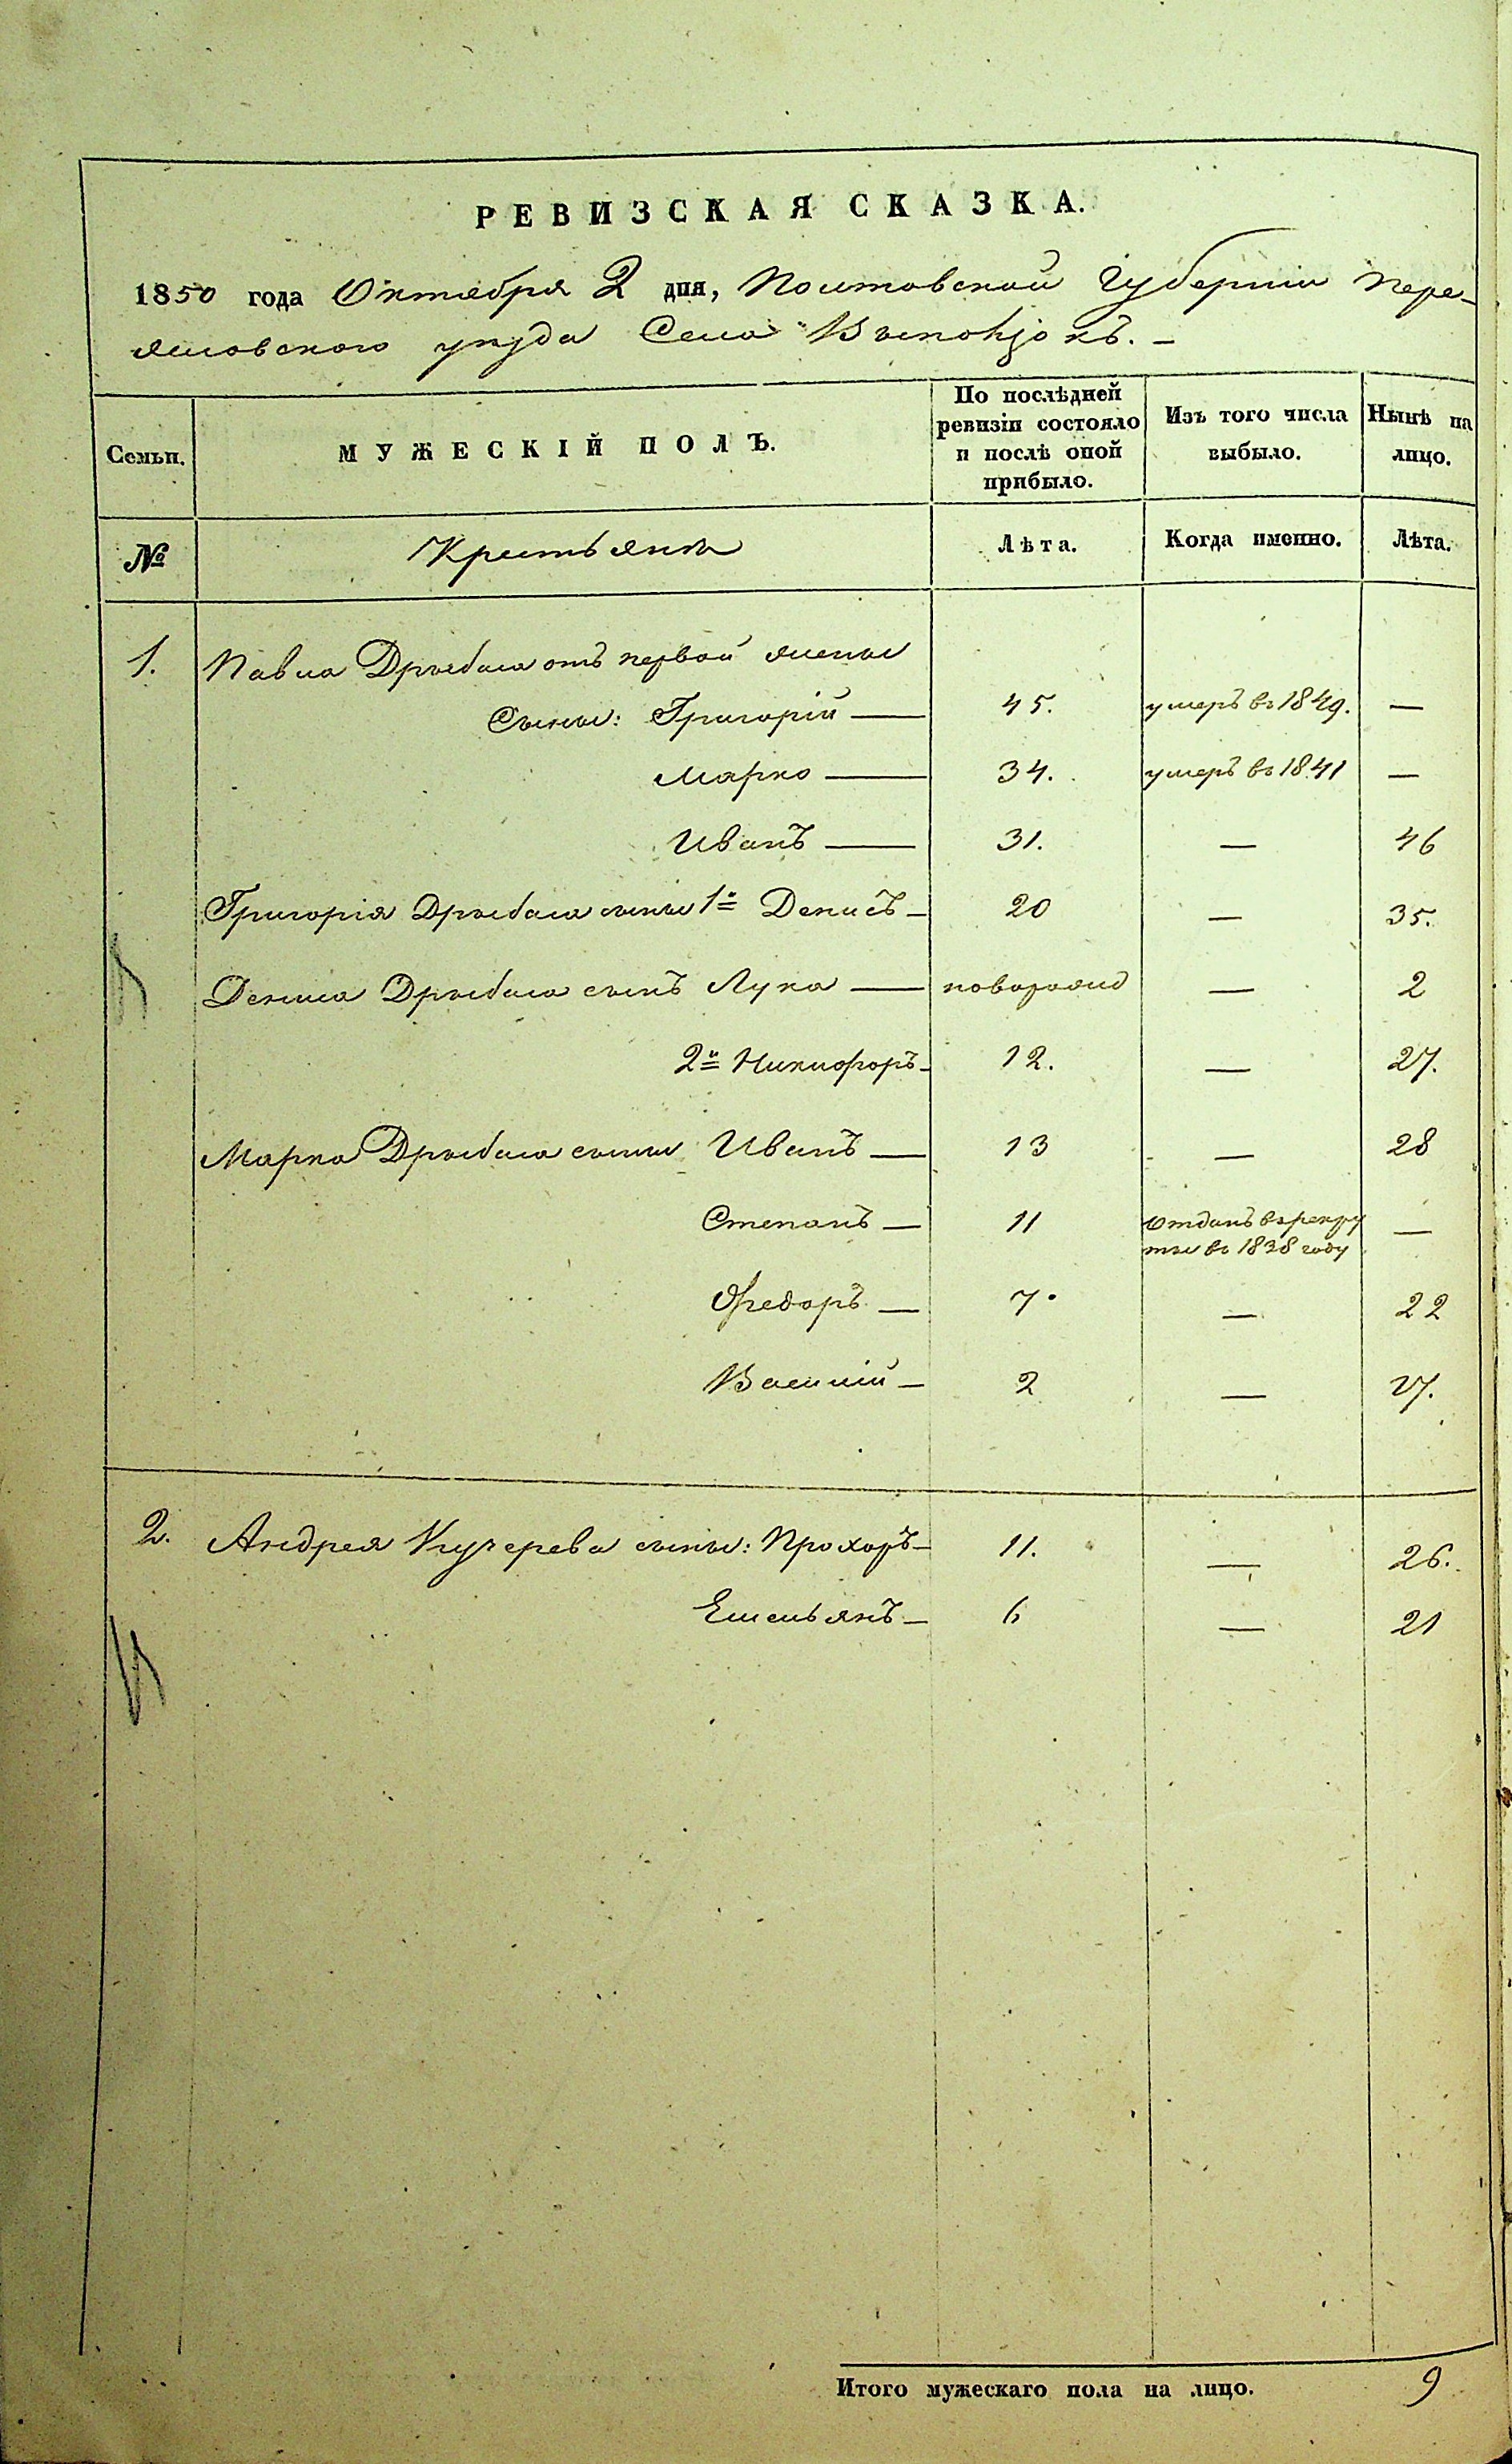 РЕВИЗСКАЯ СКАЗКА.
1850 года Октября 2 дня, Полтавской Губерніи Пере-
яславского уезда Села
Семьи. МУЖЕСКІЙ ПОЛЪ. По послѣдней ревизіи состояло и послѣ оной прибыло. Изъ того числа выбыло. Нынѣ на лицо.
№ Крестьяне Лѣта. Когда именно. Лѣта.
1. Павла Дрыбала отъ первой жены
Сыны: Григорій — 45. умеръ въ 1849. —
Марко — 34. умеръ въ 1841 —
Иванъ — 31. — 46
Григорія Дрыбала сыны 1й Денисъ — 20 — 35.
Дениса Дрыбала сынъ Лука — новорожд — 2
2й Никифоръ — 12. — 27.
Марка Дрыбала сыны Иванъ — 13 — 28
Степанъ — 11 Отданъ въ рекру —
ты въ 1838 году
Федоръ — 7. — 22
Василій — 2 — 17.
2. Андрея Кучерева сыны: Прохоръ — 11. — 26.
Емельянъ — 6 — 21
Итого мужескаго пола на лицо. 9